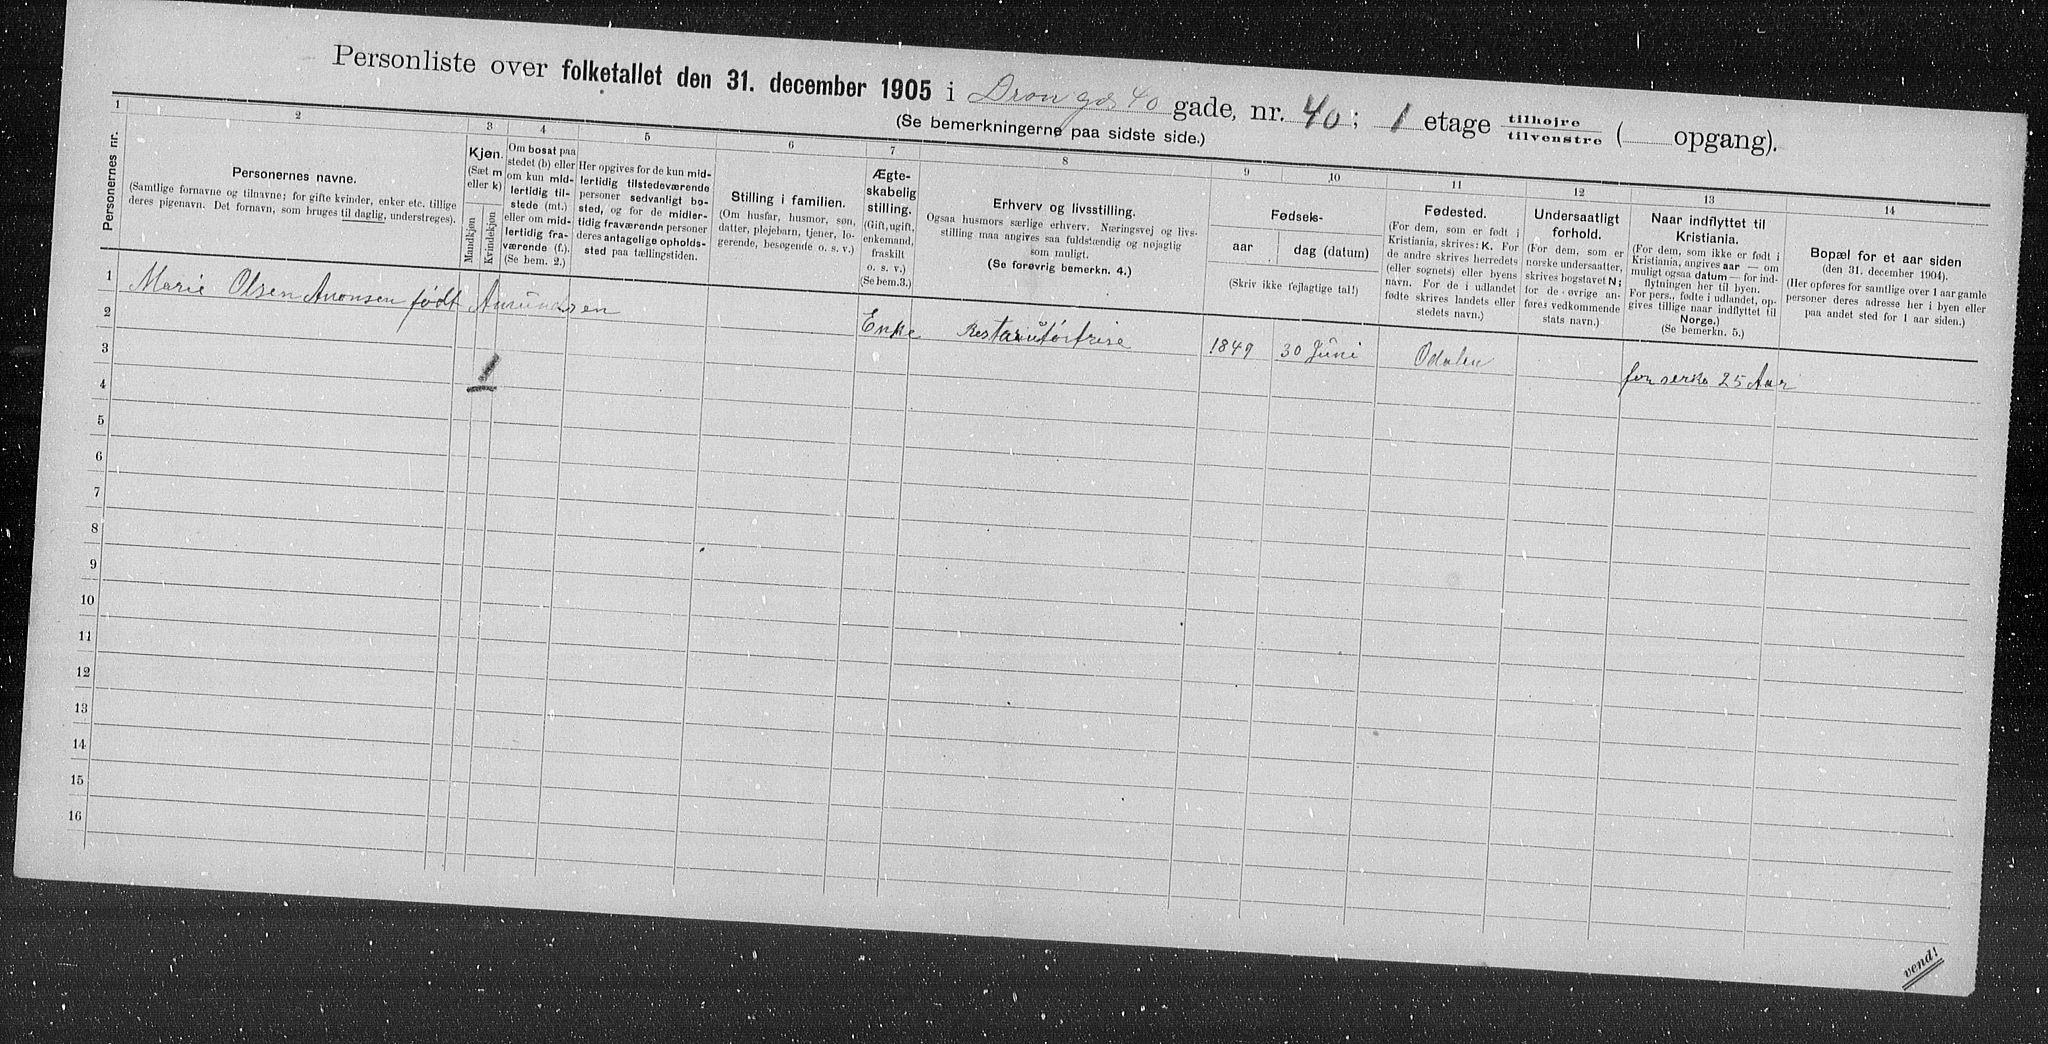 Personliste over folketallet den 31. december 1905 i Dron gds 40 gade, nr. 40; 1 etage tilhøjre tilvenstre ( opgang).
(Se bemerkningerne paa sidste side.)
1 2 3 4 5 6 7 8 9 10 11 12 13 14
Personernes nr.
Personernes navne.
(Samtlige fornavne og tilnavne; for gifte kvinder, enker etc. tillige
deres pigenavn. Det fornavn, som bruges til daglig, understreges).
Kjøn.
(Sæt m
eller k)
Mandkjøn
Kvindekjøn
Om bosat paa
stedet (b) eller
om kun mid-
lertidig til-
stede (mt.)
eller om mid-
lertidig fra-
værende (f.).
(Se bem. 2.)
Her opgives for de kun mid-
lertidig tilstedeværende
personer sedvanligt bo-
sted, og for de midler-
tidig fraværende personer
deres antagelige opholds-
sted paa tællingstiden.
Stilling i familien.
(Om husfar, husmor, søn,
datter, plejebarn, tjener, lo-
gerende, besøgende o. s. v.)
Ægte-
skabelig
stilling.
(Gift, ugift,
enkemand,
fraskilt
o. s. v.)
(Se bem.3.)
Erhverv og livsstilling.
Ogsaa husmors særlige erhverv. Næringsvej og livs-
stilling maa angives saa fuldstændig og nøjagtig
som muligt.
(Se forøvrig bemerkn. 4.)
Fødsels-
aar
dag (datum)
(Skriv ikke fejlagtige tal!)
Fødested.
(For dem, som er født i
Kristiania, skrives: K. For
de andre skrives herredets
(eller sognets) eller byens
navn. For de i udlandet
fødte skrives landets eller
stedets navn.)
Undersaatligt
forhold.
(For dem, som er
norske undersaatter,
skrives bogstavet N;
for de øvrige an-
føres vedkommende
stats navn.)
Naar indflyttet til
Kristiania.
(For dem, som ikke er født i
Kristiania, angives aar — om
muligt ogsaa datum — for ind-
flytningen her til byen.
For pers., fødte i udlandet, op-
gives tillige naar indflyttet til
Norge.)
(Se bemerkn. 5.)
Bopæl for et aar siden
(den 31. december 1904).
(Her opføres for samtlige over 1 aar gamle
personer deres adresse her i byen eller
paa andet sted for 1 aar siden.)
1 Marie Olsen Anonsen født Enke 1849 30 Juni Odalen for serka 25 Aar
1
2
3
4
5
6
7
8
9
10
11
12
13
14
15
16
vend!